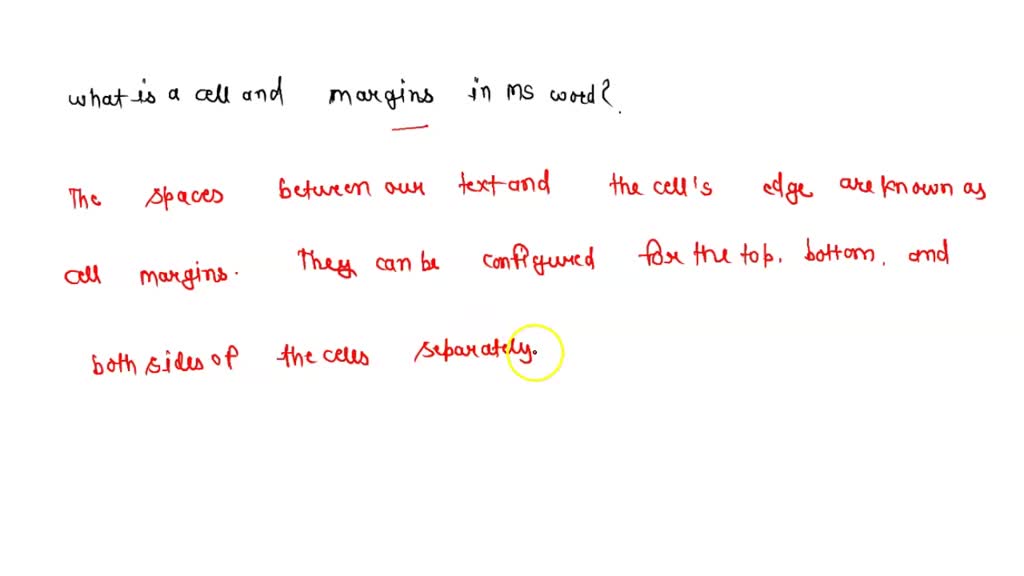 what is a cell and margins in MS word?
The spaces between our text and the cell's edge are known as
cell margins. They can be configured for the top, bottom, and
both sides of the cells separately.